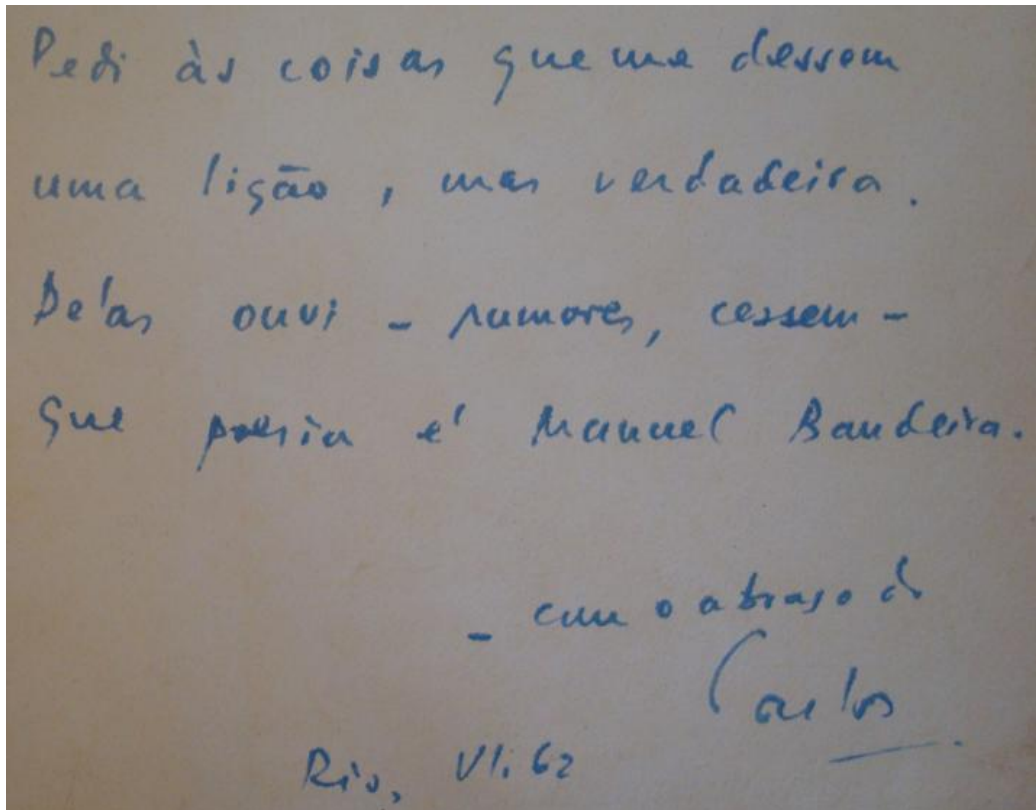 Pedi às coisas que me dessem
uma lição, mas verdadeira.
Delas ouvi - rumores, cessem -
que poesia é Manuel Bandeira.
- com o abraço do
Carlos
Rio, VI.62